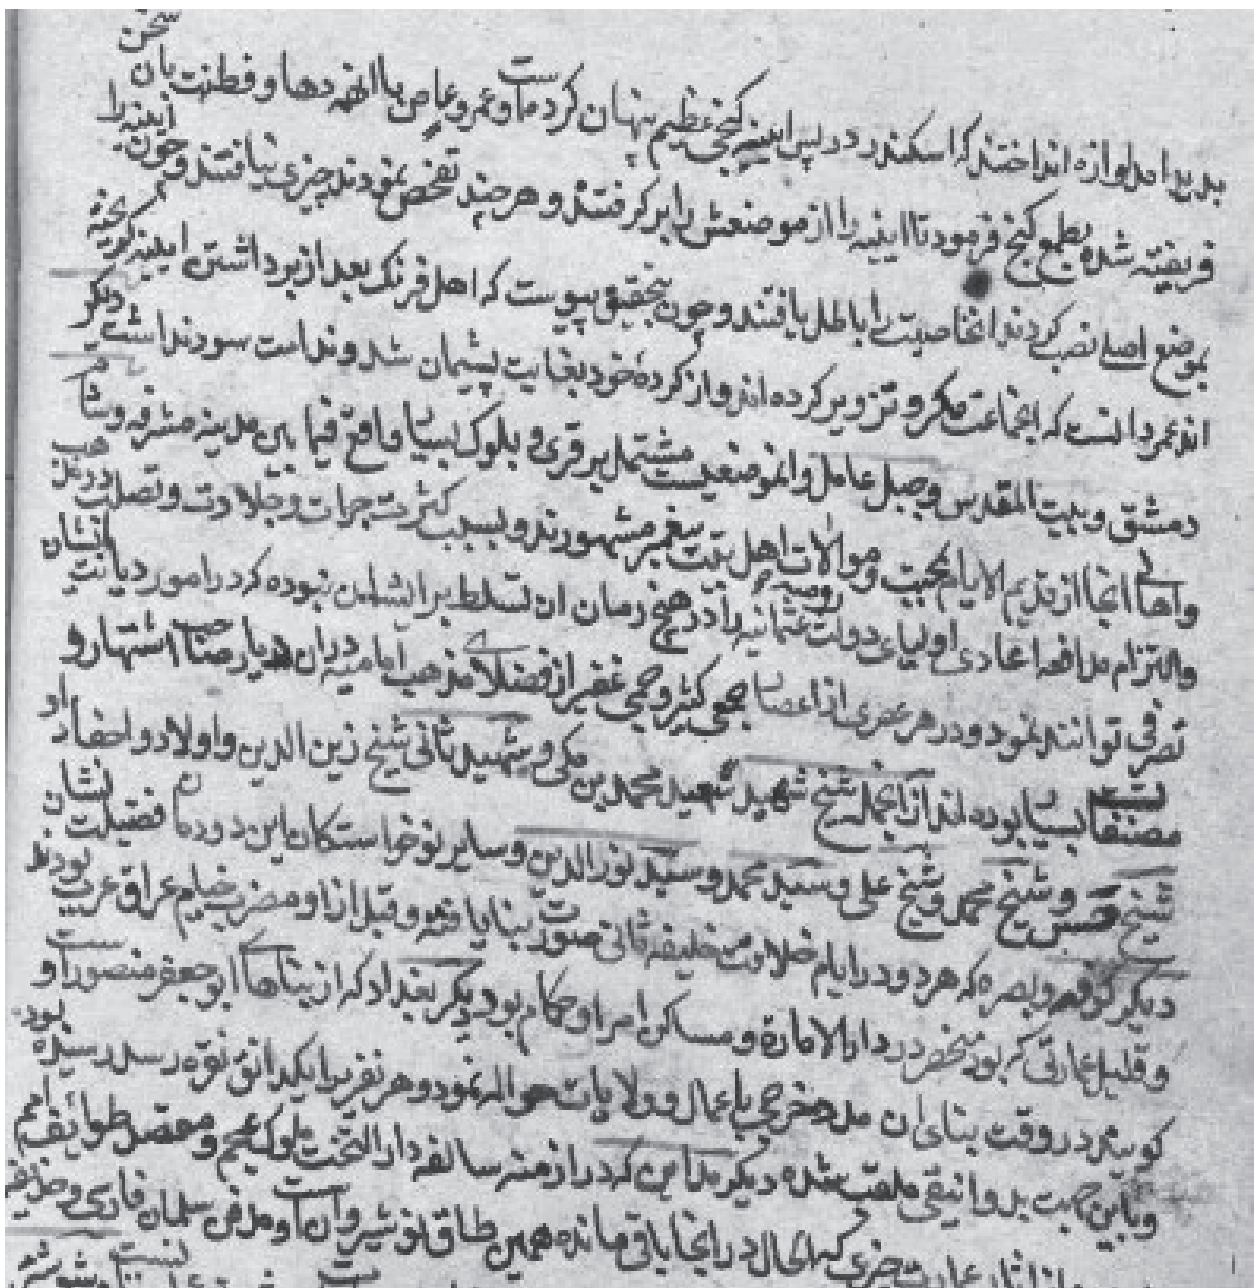 بدیدامد اوازه انداختند که اسکندر در پس اینه کنجی عظیم پنهان کرده است و عمرو عاص با انهمه دها و فطنت بان سخن
فریفته شده بطمع کنج فرمود تا اینه را از موضعش برابر کرفتند و هر چند تفحص نمودند چیزی نیافتند و چون اینه را
بموضع اصلی نصب کردند انخاصیت را باطل یافتند و چون بتحقیق پیوست که اهل فرنک بعد از برداشتن اینه کریخته
اند عمر دانست که انجماعت مکر و تزویر کرده اند و از کردۀ خود بغایت پشیمان شد و ندامت سود نداشت دیکر
دمشق و بیت المقدس و جبل عامل و انموضعیست مشتمل بر قری و بلوک بسیار واقع فیما بین مدینه مشرفه و شام
و اهالی انجا از قدیم الایام بمحبت و موالات اهل بیت پیغمبر مشهورند و بسبب کثرت جرات و جلادت و تصلب در مذهب
و التزام مدافعه اعادی اولیای دولت عثمانیه رومیه را در هیچ زمان ان تسلط بر ایشان نبوده که در امور دیانت ایشان
تصرفی توانند نمود و در هر عصری از اعصار جمعی کثیر و جمی غفیر از فضلای مذهب امامیه در ان دیار صاحب اشتهار و
مصنفات بسیار بوده اند از انجمله شیخ شهید سعید محمد بن مکی و شهید ثانی شیخ زین الدین و اولاد و احفاد او
شیخ حسن و شیخ محمد و شیخ علی و سید محمد و سید نورالدین و سایر نوخواستکان این دودمان فضیلت نشان
دیکر کوفه و بصره که هر دو در ایام خلافت خلیفه ثانی صورت بنا یافته و قبل از او مضرب خیام عراق عرب بودند
و قلیل عمارتی که بود منحصر در دار الاماره و مساکن امرا و حکام بود دیکر بغداد که از بناهای ابو جعفر منصور است و او
کویند در وقت بنای ان مدخرجی باعمال و ولایات حواله نمود و هر نفر را یکدانق نقره رسد رسیده بود
و باین جهت بدوانیقی ملقب شده دیکر مداین که در ازمنه سالفه دار التخت ملوک عجم و مقصد طوائف امم
چیزی که الحال در انجا باقی مانده همین طاق نوشیروان است و مدفن سلمان فارسی و حذیفه